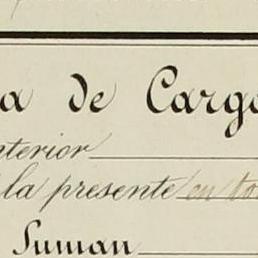 a de Cargo
nterior
la presente en to
Suman